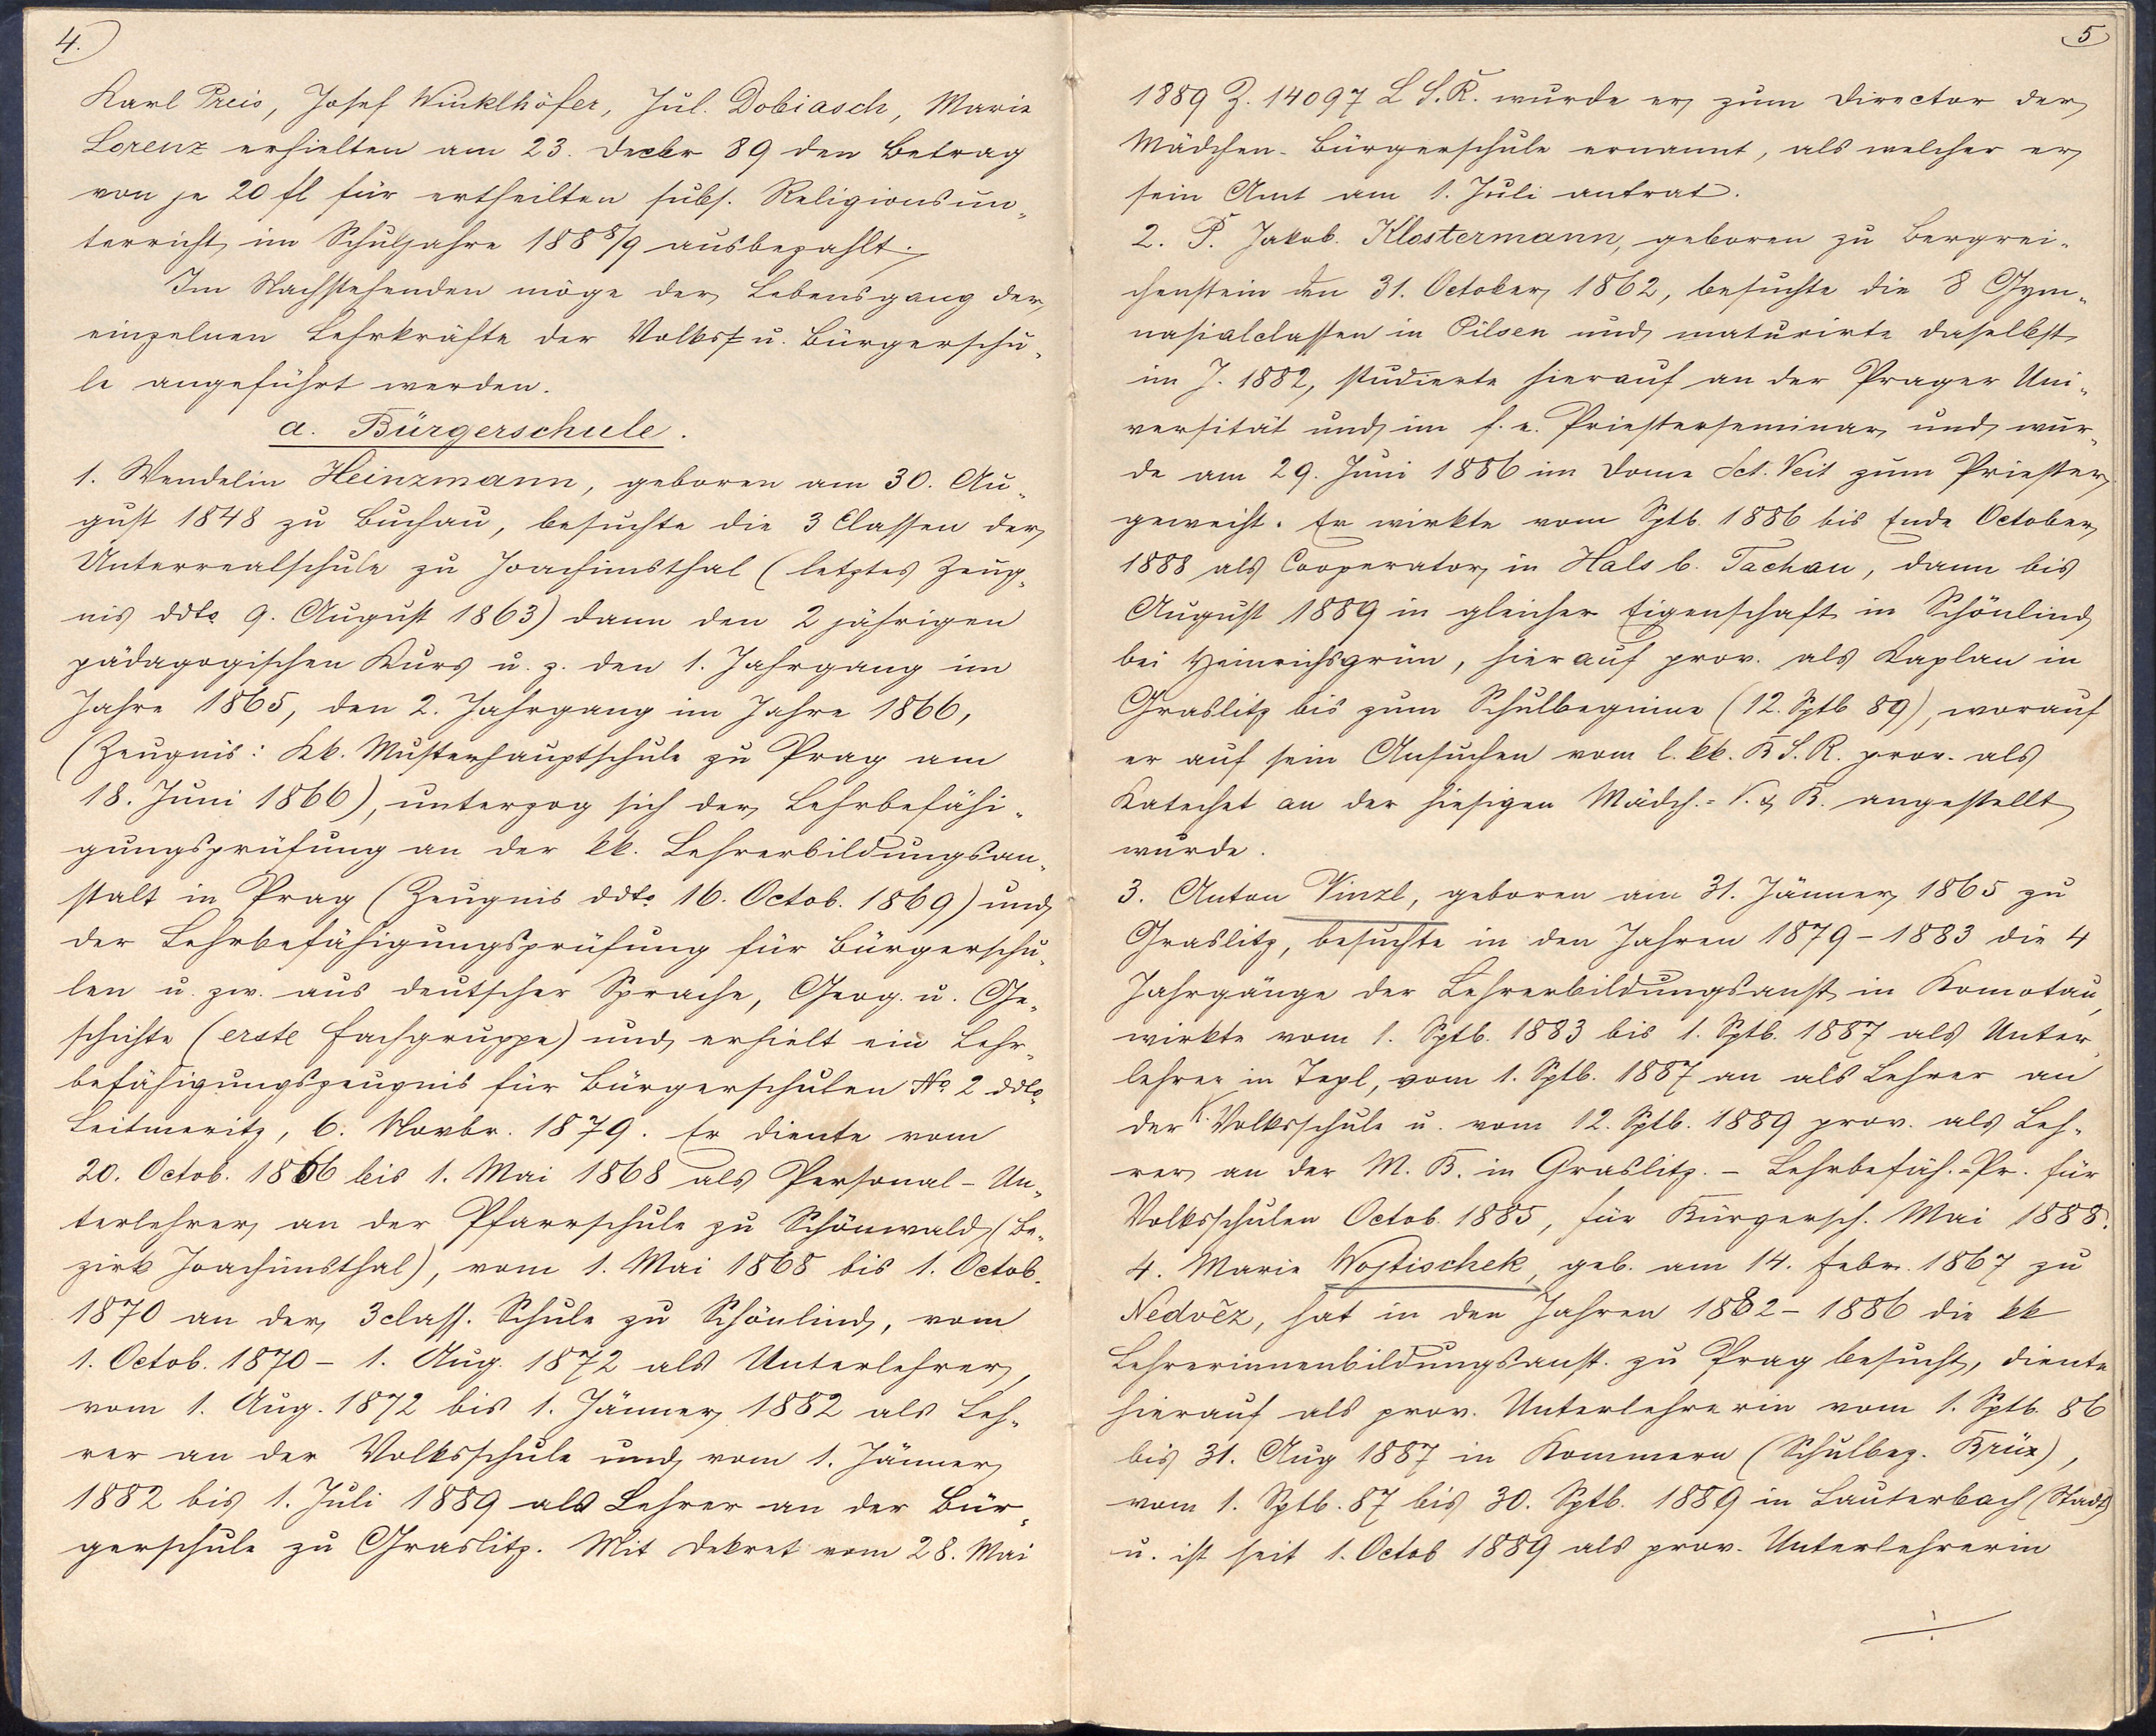 4.
Karl Preis, Josef Winklhöfer, Jul. Dobiasch, Marie
Lorenz erhielten am 23. Decbr 89 den Betrag
von je 20 fl für ertheilten subs. Religionsun„
terricht im Schuljahre 1888/9 ausbezahlt.
Im Nachstehenden möge der Lebensgang der
einzelnen Lehrkräfte der Volks- u. Bürgerschu„
le angeführt werden.
a. Bürgerschule.
1. Wendelin Heinzmann, geboren am 30. Au„
gust 1848 zu Buchau, besuchte die 3 Classen der
Unterrealschule zu Joachimsthal (letztes Zeug„
nis ddto 9. August 1863) dann den 2 jährigen
pädagogischen Kurs u. z. den 1. Jahrgang im
Jahre 1865, den 2. Jahrgang im Jahre 1866,
(Zeugnis: Kk. Musterhauptschule zu Prag am
18. Juni 1866), unterzog sich der Lehrbefähi„
gungsprüfung an der kk. Lehrerbildungsan„
stalt in Prag (Zeugnis ddto 16. Octob. 1869) und
der Lehrbefähigungsprüfung für Bürgerschu„
len u. zw. aus deutscher Sprache, Geog. u. Ge„
schichte (erste Fachgruppe) und erhielt ein Lehr„
befähigungszeugnis für Bürgerschulen No. 2 ddto
Leitmeritz, 6. Novbr. 1879. Er diente vom
20. Octob. 1866 bis 1. Mai 1868 als Personal-Un„
terlehrer an der Pfarrschule zu Schönwald (Be„
zirk Joachimsthal), vom 1. Mai 1868 bis 1. Octob.
1870 an der 3class. Schule zu Schönlind, vom
1. Octob. 1870 - 1. Aug. 1872 als Unterlehrer,
vom 1. Aug. 1872 bis 1. Jänner 1882 als Leh„
rer an der Volksschule und vom 1. Jänner
1882 bis 1. Juli 1889 als Lehrer an der Bür„
gerschule zu Graslitz. Mit Dekret vom 28. Mai
5
1889 Z. 14097 L.S.R. wurde er zum Director der
Mädchen-Bürgerschule ernannt, als welcher er
sein Amt am 1. Juli antrat.
2. P. Jakob. Klostermann, geboren zu Bergrei„
chenstein den 31. October 1862, besuchte die 8 Gym„
nasialclassen in Pilsen und maturirte daselbst
im J. 1882, studierte hierauf an der Prager Uni„
versität und im f. e. Priesterseminar und wur„
de am 29. Juni 1886 im Dome Sct. Veit zum Priester
geweiht. Er wirkte vom Sptb. 1886 bis Ende October
1888 als Cooperator in Hals b. Tachau, dann bis
August 1889 in gleicher Eigenschaft in Schönlind
bei Heinrichsgrün, hierauf prov. als Kaplan in
Graslitz bis zum Schulbeginne (12. Sptb 89), worauf
er auf sein Ansuchen vom l. kk. B.S.R. prov. als
Katechet an der hiesigen Mädch.= V. & B. angestellt
wurde.
3. Anton Vinzl, geboren am 31. Jänner 1865 zu
Graslitz, besuchte in den Jahren 1879-1883 die 4
Jahrgänge der Lehrerbildungsanst. in Komotau,
wirkte vom 1. Sptb. 1883 bis 1. Sptb. 1887 als Unter„
lehrer in Tepl, vom 1. Sptb. 1887 an als Lehrer an
der K. Volksschule u. vom 12. Sptb. 1889 prov. als Leh„
rer an der M. B. in Graslitz. - Lehrbefäh.=Pr. für
Volksschulen Octob. 1885, für Bürgersch. Mai 1888.
4. Marie Wojtischek, geb. am 14. Febr. 1867 zu
Nedvěz, hat in den Jahren 1882-1886 die kk
Lehrerinnenbildungsanst. zu Prag besucht, diente
hierauf als prov. Unterlehrerin vom 1. Sptb. 86
bis 31. Aug 1887 in Kommern (Schulbez. Brüx),
vom 1. Sptb. 87 bis 30. Sptb. 1889 in Lauterbach (Stadt)
u. ist seit 1. Octob 1889 als prov. Unterlehrerin